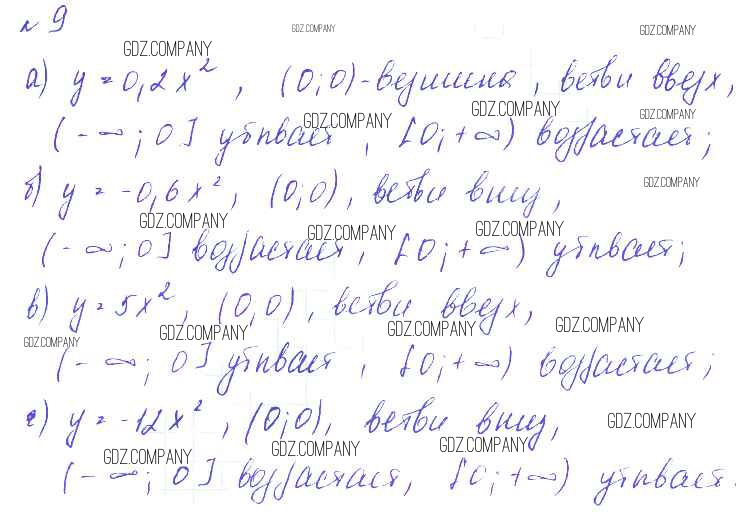 № 9
GDZ.COMPANY GDZ.COMPANY GDZ.COMPANY
а) y = 0,2x², (0;0) - вершина, ветви вверх,
GDZ.COMPANY GDZ.COMPANY GDZ.COMPANY
(-∞; 0] убывает, [0; +∞) возрастает;
б) y = -0,6x², (0;0), ветви вниз,
GDZ.COMPANY
GDZ.COMPANY GDZ.COMPANY GDZ.COMPANY
(-∞; 0] возрастает, [0; +∞) убывает;
в) y = 5x², (0;0), ветви вверх,
GDZ.COMPANY GDZ.COMPANY GDZ.COMPANY GDZ.COMPANY
(-∞; 0] убывает, [0; +∞) возрастает;
г) y = -12x², (0;0), ветви вниз,
GDZ.COMPANY
GDZ.COMPANY GDZ.COMPANY GDZ.COMPANY
(-∞; 0] возрастает, [0; +∞) убывает.